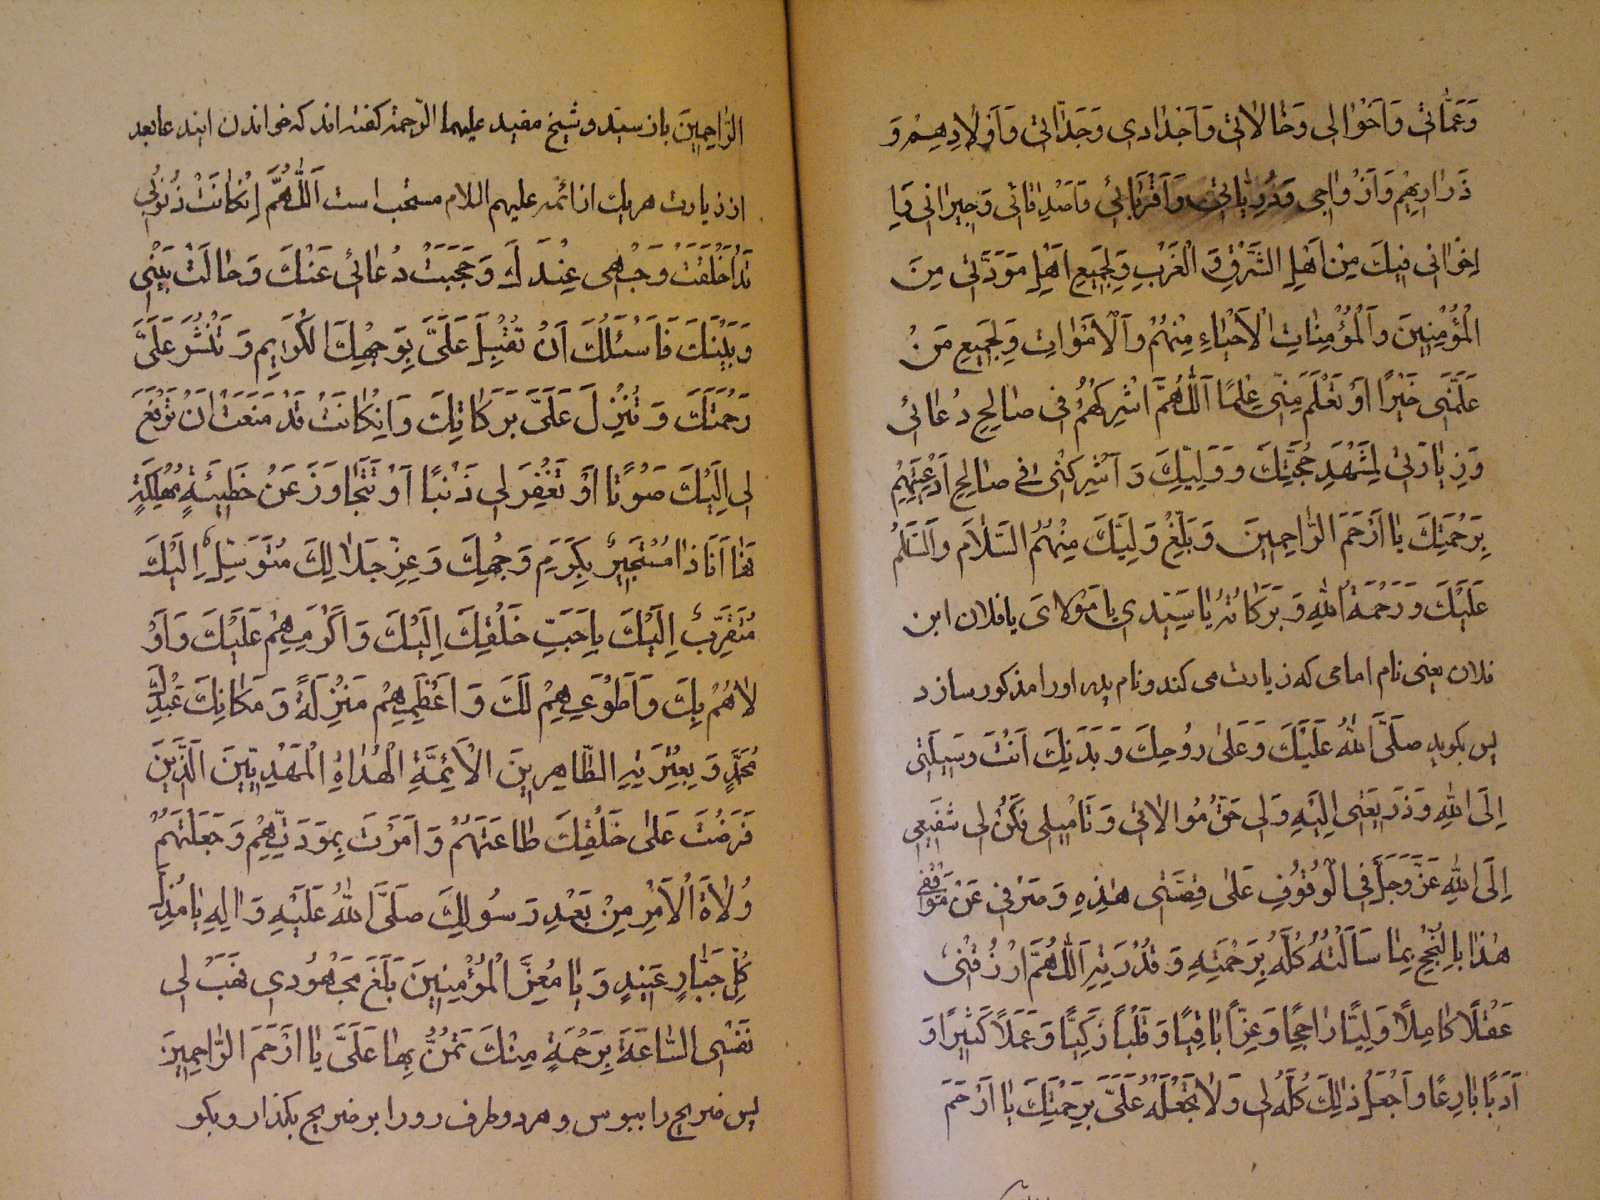 وَعَمَّاتی وَاَخْوٰالی وَخٰالاتیٰ وَاَجْدٰادی وَجَدّٰاتیٰ وَاَوْلادِهِمْ وَ
ذَرٰارِیهِمْ وَاَزْوٰاجی وَذُرِّیّٰاتیٰ وَاَقْرِبٰائی وَاَصْدِقٰائی وَجیرٰانی وَیٰا
اِخْوٰانی فیكَ مِنْ اَهْلِ الشَّرْقِ وَ الْغَرْبِ وَلِجَمیعِ اَهْلِ مَوَدَّتی مِنَ
الْمُؤْمِنینَ وَالْمُؤْمِنٰاتِ الْاَحْیٰاءِ مِنْهُمْ وَالْاَمْوٰاتِ وَلِجَمیعِ مَنْ
عَلَّمَنی خَیْرًا اَوْ تَعَلَّمَ مِنّی عِلْمًا اَللّٰهُمَّ اَشْرِكْهُمْ فی صٰالِحِ دُعٰائی
وَزِیٰارَتیٰ لِمَشْهَدِ حُجَّتِكَ وَوَلِیِّكَ وَ اَشْرِكْنی فی صٰالِحِ اَدْعِیَتِهِمْ
بِرَحْمَتِكَ یٰا اَرْحَمَ الرّٰاحِمینَ وَبَلِّغْ وَلِیَّكَ مِنْهُمُ السَّلٰامَ وَالسَّلٰمُ
عَلَیْكَ وَرَحْمَةُ اللهِ وَبَرَكٰاتُهُ یٰا سَیِّدی یٰا مَوْلٰایَ یا فلان ابن
فلان یعنی نام امامی که زیارت می کند و نام پدر او را مذکور سازد
پس بکوید صَلَّی اللهُ عَلَیْكَ وَعَلیٰ رُوحِكَ وَبَدَنِكَ اَنْتَ وَسیلَتی
اِلَی اللهِ وَذَریعَتی اِلَیْهِ وَلی حَقُّ مُوٰالاتی وَتَاْمیلی فَكُنْ لی شَفیعی
اِلَی اللهِ عَزَّ وَجَلَّ فی الْوُقُوفِ عَلیٰ قِصَّتی هٰذِهِ وَصَرْفی عَنْ مَوْقِفی
هٰذٰا بِالنُّجْحِ بِمٰا سَاَلْتُهُ كُلَّهُ بِرَحْمَتِهِ وَقُدْرَتِهِ اَللّٰهُمَّ ارْزُقْنی
عَقْلًا كٰامِلًا وَلُبًّا رٰاجِحًا وَعِزًّا بٰاقِیًا وَقَلْبًا زَكِیًّا وَعَمَلًا كَثیرًا وَ
اَدَبًا بٰارِعًا وَاجْعَلْ ذٰلِكَ كُلَّهُ لی وَلٰا تَجْعَلْهُ عَلَیَّ بِرَحْمَتِكَ یٰا اَرْحَمَ
الرّٰاحِمینَ بان سید و شیخ مفید علیهما الرّحمة کفته اند که خواندن ایندعا بعد
از زیارت هر یك از ائمه علیهم السلام مستحب است اَللّٰهُمَّ اِنْكٰانَتْ ذُنُوبی
قَدْ اَخْلَقَتْ وَجْهی عِنْدَكَ وَحَجَبَتْ دُعٰائی عَنْكَ وَحٰالَتْ بَیْنی
وَبَیْنَكَ فَاَسْئَلُكَ اَنْ تُقْبِلَ عَلَیَّ بِوَجْهِكَ الْكَریمِ وَتَنْشُرَ عَلَیَّ
رَحْمَتَكَ وَتُنَزِّلَ عَلَیَّ بَرَكٰاتِكَ وَاِنْكٰانَتْ قَدْ مَنَعَتْ اَنْ تَرْفَعَ
لی اِلَیْكَ صَوْتًا اَوْ تَغْفِرَ لی ذَنْبًا اَوْ تَتَجٰاوَزَ عَنْ خَطیئَةٍ مُهْلِكَةٍ
فَهٰا اَنَا ذٰا مُسْتَجیرٌ بِكَرَمِ وَجْهِكَ وَعِزِّ جَلٰالِكَ مُتَوَسِّلٌ اِلَیْكَ
مُتَقَرِّبٌ اِلَیْكَ بِاَحَبِّ خَلْقِكَ اِلَیْكَ وَاَكْرَمِهِمْ عَلَیْكَ وَاَوْ
لٰاهُمْ بِكَ وَاَطْوَعِهِمْ لَكَ وَاَعْظَمِهِمْ مَنْزِلَةً وَمَكٰانًا عِنْدَكَ
مُحَمَّدٍ وَبِعِتْرَتِهِ الطّٰاهِرینَ الْاَئِمَّةِ الْهُدٰاةِ الْمَهْدِیّینَ الَّذینَ
فَرَضْتَ عَلیٰ خَلْقِكَ طٰاعَتَهُمْ وَاَمَرْتَ بِمَوَدَّتِهِمْ وَجَعَلْتَهُمْ
وُلٰاةَ الْاَمْرِ مِنْ بَعْدِ رَسُولِكَ صَلَّی اللهُ عَلَیْهِ وَاٰلِهِ یٰا مُذِلَّ
كُلِّ جَبّٰارٍ عَنیدٍ وَیٰا مُعِزَّ الْمُؤْمِنینَ بَلَغَ مَجْهُودی فَهَبْ لی
نَفْسی السّٰاعَةَ بِرَحْمَةٍ مِنْكَ تَمُنُّ بِهٰا عَلَیَّ یٰا اَرْحَمَ الرّٰاحِمینَ
پس ضریح را ببوس و هر دو طرف رو را بر ضریح بکذار و بکو